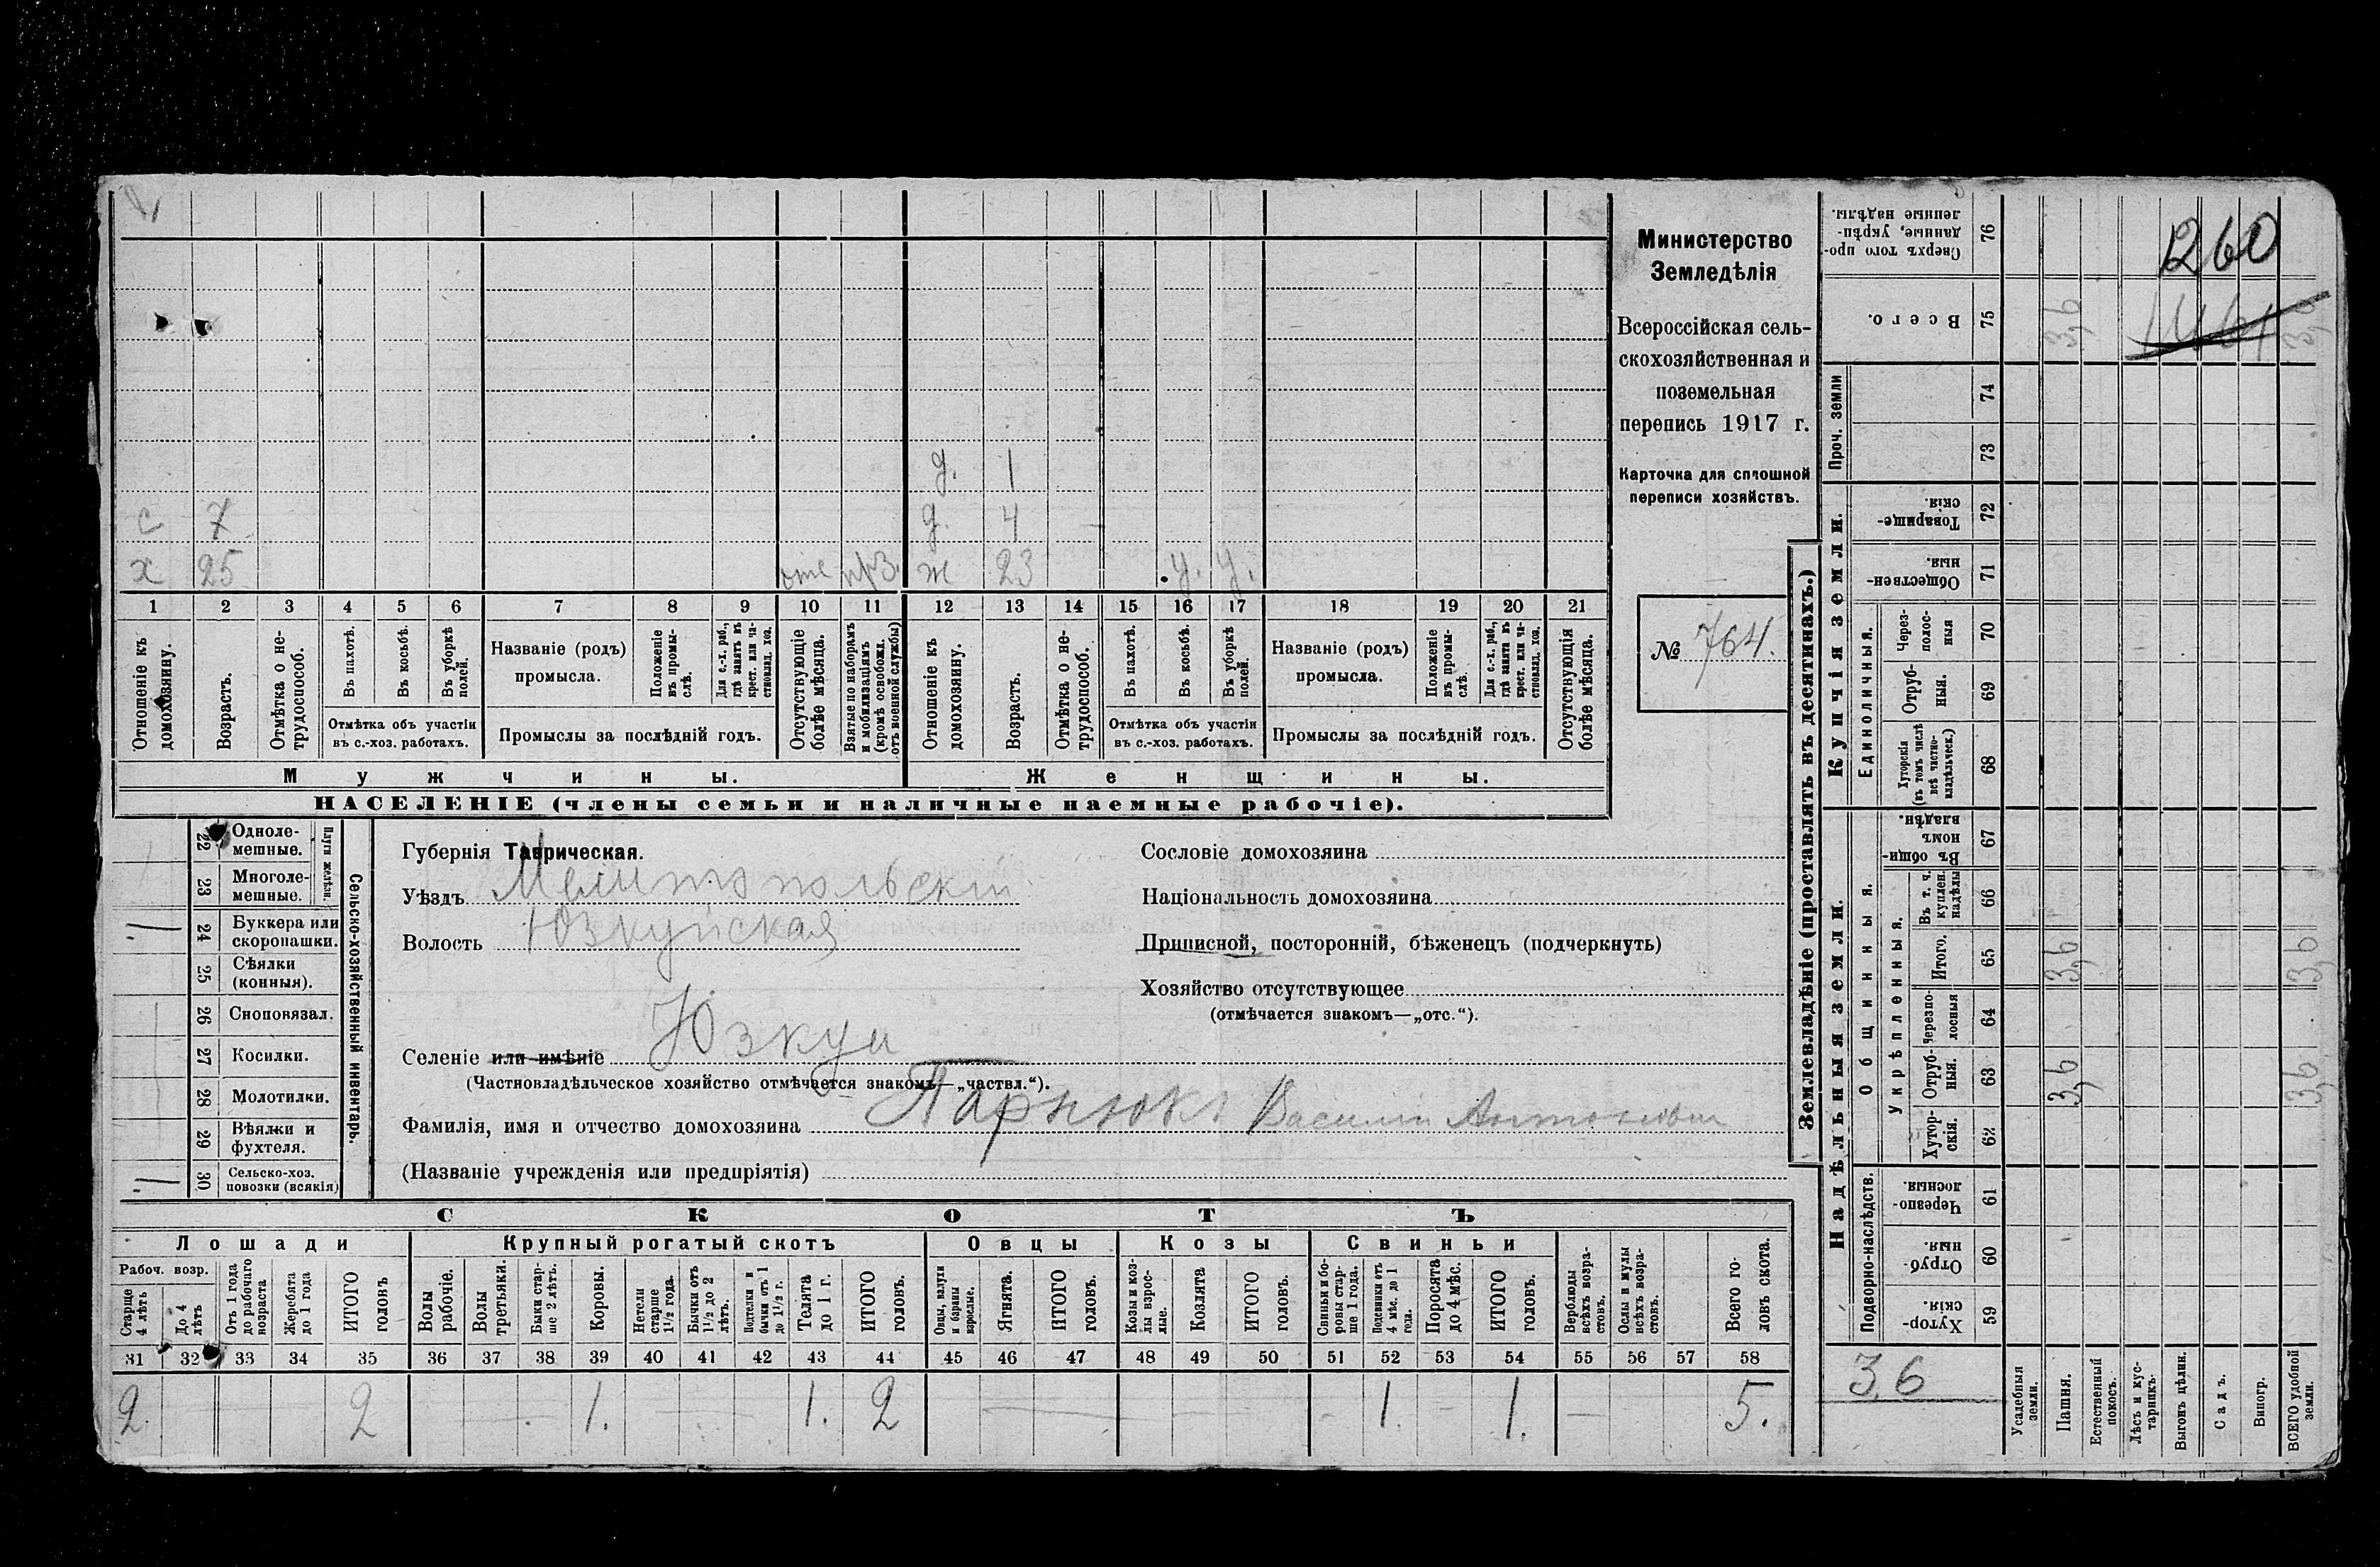 260
1461
Министерство
Земледѣлія
Всероссійская сель-
скохозяйственная и
поземельная
перепись 1917 г.
Карточка для сплошной
переписи хозяйствъ.
№ 764.
д. 1
с 7 д. 4
х 25 отс прз. ж 23 у. у.
1 2 3 4 5 6 7 8 9 10 11 12 13 14 15 16 17 18 19 20 21
Отношеніе къ домохозяину.
Возрастъ.
Отмѣтка о не-трудоспособ.
Въ пахотѣ.
Въ косьбѣ.
Въ уборкѣ полей.
Отмѣтка объ участіи
въ с.-хоз. работахъ.
Названіе (родъ)
промысла.
Положеніе въ промы-слѣ.
Для с.-х. раб., гдѣ занятъ въ крест. или ча-стновлад. хоз.
Промыслы за послѣдній годъ.
Отсутствующіе болѣе мѣсяца.
Взятые по наборамъ и мобилизаціямъ (кромѣ освобожд. отъ военной службы)
Отношеніе къ домохозяину.
Возрастъ.
Отмѣтка о не-трудоспособ.
Въ пахотѣ.
Въ косьбѣ.
Въ уборкѣ полей.
Отмѣтка объ участіи
въ с.-хоз. работахъ.
Названіе (родъ)
промысла.
Положеніе въ промы-слѣ.
Для с.-х. раб., гдѣ занята въ крест. или ча-стновлад. хоз.
Промыслы за послѣдній годъ.
Отсутствующія болѣе мѣсяца.
Мужчины. Женщины.
НАСЕЛЕНІЕ (члены семьи и наличные наемные рабочіе).
Сельско-хозяйственный инвентарь.
Плуги желѣзн.
22 Одноле-мешные.
23 Многоле-мешные.
24 Буккера или скоропашки. 1
25 Сѣялки (конныя).
26 Сноповязал.
27 Косилки.
28 Молотилки.
29 Вѣялки и фухтеля.
30 Сельско-хоз. повозки (всякія) 1
Губернія Таврическая.
Уѣздъ Мелитопольскій
Волость Юзкуйская
Селеніе или имѣніе Юзкуи
(Частновладѣльческое хозяйство отмѣчается знакомъ—„частвл.“).
Фамилія, имя и отчество домохозяина Парнюкъ Василій Антонович
(Названіе учрежденія или предпріятія)
Сословіе домохозяина
Національность домохозяина
Приписной, посторонній, бѣженецъ (подчеркнуть)
Хозяйство отсутствующее
(отмѣчается знакомъ—„отс.“).
СКОТЪ
Лошади Крупный рогатый скотъ Овцы Козы Свиньи
Рабоч. возр.
Старше 4 лѣтъ
До 4 лѣтъ
Отъ 1 года до рабочаго возраста
Жеребята до 1 года
ИТОГО головъ
Волы рабочіе.
Волы третьяки.
Быки стар-ше 2 лѣтъ.
Коровы.
Нетели старше 1½ года.
Бычки отъ 1½ до 2 лѣтъ.
Подтелки и бычки отъ 1 до 1½ г.
Телята до 1 г.
ИТОГО головъ.
Овцы, валухи и бараны взрослые.
Ягнята.
ИТОГО головъ.
Козы и коз-лы взрос-лые.
Козлята
ИТОГО головъ.
Свиньи и бо-ровы стар-ше 1 года.
Подсвинки отъ 4 мѣс. до 1 года.
Поросята до 4 мѣс.
ИТОГО головъ.
Верблюды всѣхъ возра-стовъ.
Ослы и мулы всѣхъ возра-стовъ.
Всего го-ловъ скота.
31 32 33 34 35 36 37 38 39 40 41 42 43 44 45 46 47 48 49 50 51 52 53 54 55 56 57 58
2. 2 1. 1. 2 1. 1. 5.
Землевладѣніе (проставлять въ десятинахъ.)
Надѣльныя земли. Купчія земли. Проч. земли
Подворно-наслѣдств.
Общинныя.
Укрѣпленныя.
Единоличныя.
76 Сверхъ того про-данные, укрѣп-ленные надѣлы.
75 Всего. 3,6
74
73
72 Товарище-скія.
71 Обществен-ныя.
70 Через-полос-ныя
69 Отруб-ныя.
68 Хуторскія (въ томъ числѣ всѣ частно-владѣльческ.)
67 Въ общин-номъ владѣн.
66 Въ т. ч. куплен. надѣлы
65 Итого. 3,6 3,6
64 Черезпо-лосныя
63 Отруб-ныя. 3,6 3,6
62 Хутор-скія.
61 Черезпо-лосныя.
60 Отруб-ныя.
59 Хутор-скія.
3,6
Усадебныя земли.
Пашня.
Естественный покосъ.
Лѣсъ и кус-тарникъ.
Выгонъ цѣлин.
Садъ.
Виногр.
ВСЕГО удобной земли.